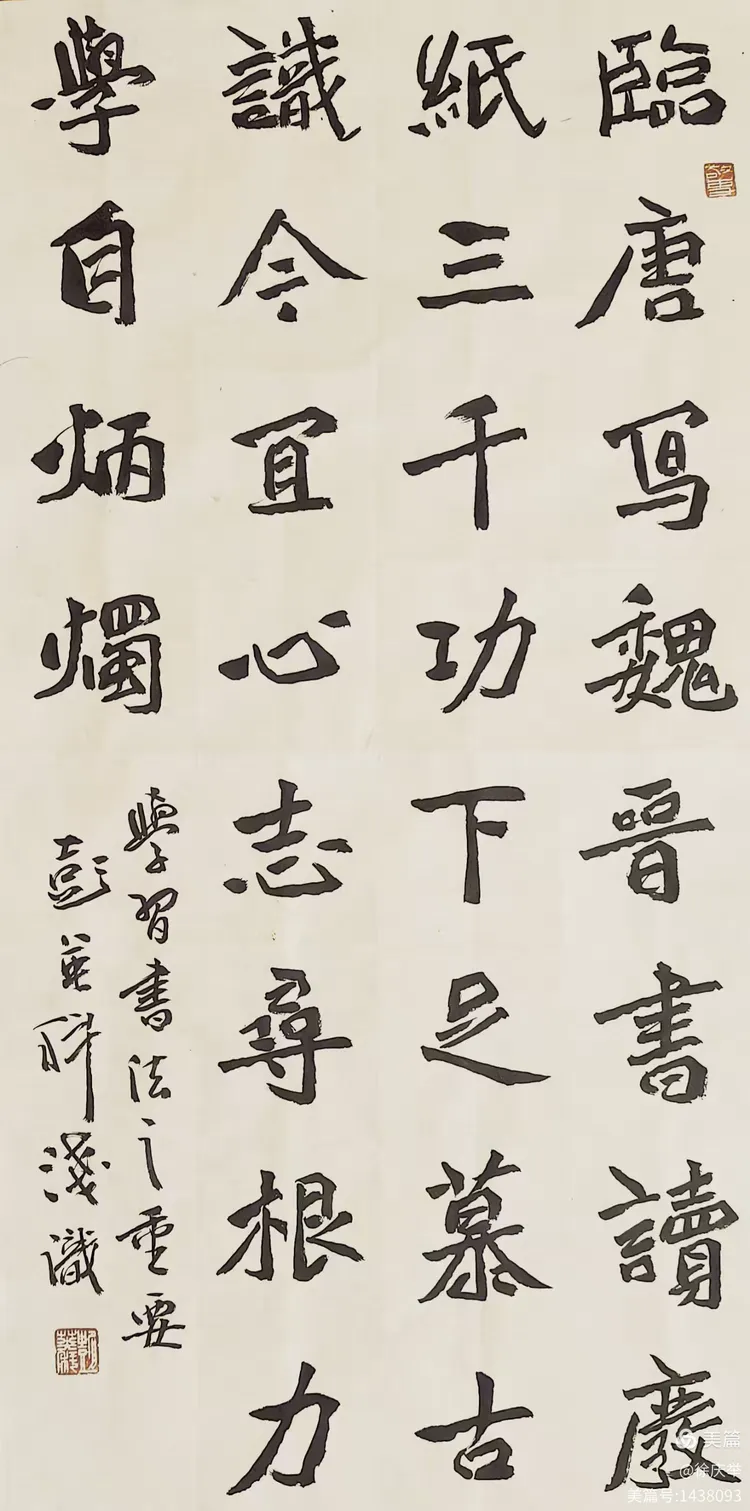 臨唐写魏晋書讀廢
紙三千功下足慕古
識今宜心志尋根力
學自炳燭
學習書法之重要
彭英科淺識
美篇
@徐庆举
美篇号:1438093